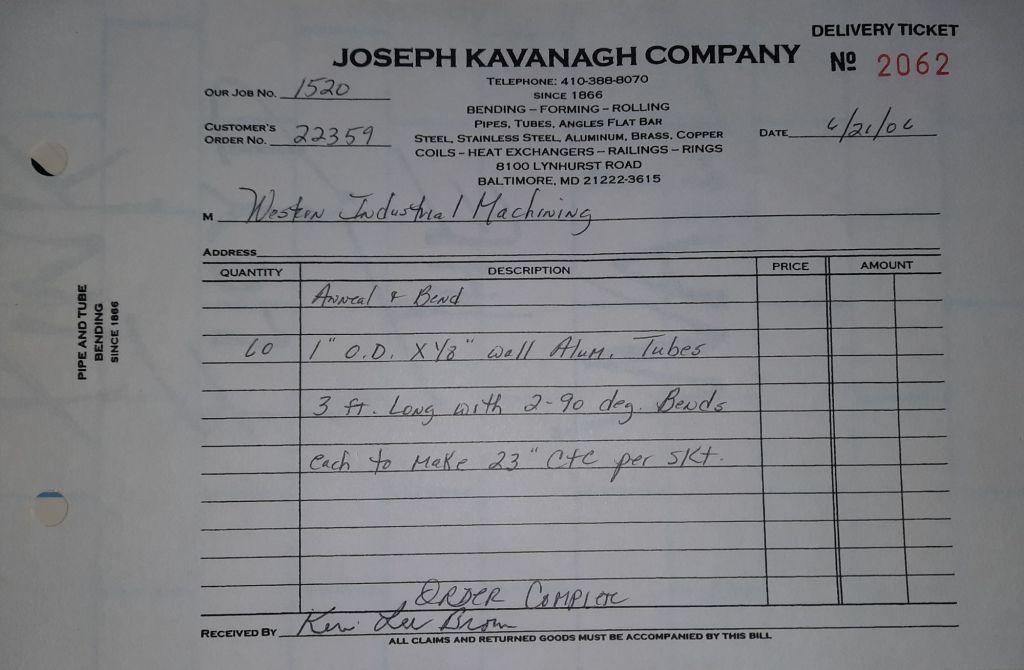 DELIVERY TICKET
JOSEPH KAVANAGH COMPANY
Nº 2062
TELEPHONE: 410-388-8070
SINCE 1866
OUR JOB NO. 1520
BENDING – FORMING – ROLLING
PIPES, TUBES, ANGLES FLAT BAR
CUSTOMER'S
ORDER NO. 22359
STEEL, STAINLESS STEEL, ALUMINUM, BRASS, COPPER
DATE 6/21/06
COILS – HEAT EXCHANGERS – RAILINGS – RINGS
8100 LYNHURST ROAD
BALTIMORE, MD 21222-3615
M Western Industrial Machining
ADDRESS
QUANTITY DESCRIPTION PRICE AMOUNT
Anneal & Bend
60 1" O.D. X 1/8" wall Alum. Tubes
3 ft. Long with 2-90 deg. Bends
each to make 23" CtC per skt.
ORDER COMPLETE
RECEIVED BY Lee Brown
ALL CLAIMS AND RETURNED GOODS MUST BE ACCOMPANIED BY THIS BILL
PIPE AND TUBE
BENDING
SINCE 1866